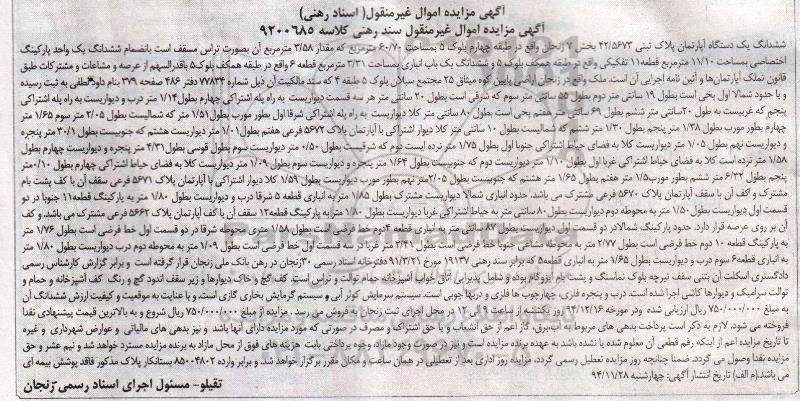 آگهی مزایده اموال غیرمنقول( اسناد رهنی)
آگهی مزایده اموال غیرمنقول سند رهنی کلاسه ۹۲۰۰۶۸۵
ششدانگ یک دستگاه آپارتمان پلاک ثبتی ۴۲/۵۶۷۳ بخش ۷ زنجان واقع در طبقه چهارم بلوک ۵ بمساحت ۶۰/۷۰ مترمربع که مقدار ۳/۵۸ مترمربع آن بصورت تراس مسقف است بانضمام ششدانگ یک واحد پارکینگ
اختصاصی بمساحت ۱۱/۱۰ مترمربع قطعه۱۱ تفکیکی واقع در طبقه همکف بلوک ۵ و ششدانگ یک باب انباری بمساحت ۳/۳۱ مترمربع قطعه ۶ واقع در طبقه همکف بلوک۵ باقدرالسهم از عرصه و مشاعات و مشترکات طبق
قانون تملک آپارتمان‌ها و آئین نامه اجرایی آن است. ملک واقع در زنجان اراضی پایین کوه میثاق ۲۵ مجتمع سبلان بلوک ۵ طبقه ۴ که سند مالکیت آن ذیل شماره ۷۷۸۳۴ دفتر ۴۸۶ صفحه ۳۷۹ بنام داود لطفی به ثبت رسیده
و با حدود شمالا اول پخی است بطول ۱۹ سانتی متر دوم بطول ۵۵ سانتی متر سوم که شرقی است بطول ۲۰ سانتی متر هر سه قسمت دیواریست به راه پله اشتراکی چهارم بطول۱/۱۴ متر درب و دیواریست به راه پله اشتراکی
پنجم که غربیست به طول ۲۰سانتی متر ششم بطول ۶۹ سانتی متر هفتم پخی است بطول ۸۰ سانتی متر کلا دیواریست به راه پله اشتراکی شرقا اول بطور مورب بطول ۱/۵۱ متر که شمالیست بطول ۲/۰۵ متر سوم ۱/۶۵ متر
چهارم بطور مورب بطول ۱/۳۸ متر پنجم بطول ۱/۳۰ متر ششم که شمالیست بطول ۱۰ سانتی متر کلا دیوار اشتراکی با آپارتمان پلاک ۵۶۷۲ فرعی هفتم بطول ۱/۰۱ متر دیواریست هشتم که جنوبیست بطول ۳۰/۱ متر پنجره
و دیواریست نهم بطول ۱/۰۵ متر دیواریست کلا به فضای حیاط اشتراکی جنوبا اول بطول ۱/۷۵ متر نرده ایست دوم که شرقیست بطول ۰/۵۰ متر دیواریست سوم بطول قوسی بطول ۴/۳۱ متر پنجره و دیواریست چهارم بطول
۱/۵۸ متر نرده است کلا به فضای حیاط اشتراکی غربا اول بطول ۱/۱۰ متر دیواریست دوم که جنوبیست بطول ۱/۶۴ متر پنجره و دیواریست سوم بطول ۱/۰۹ متر دیواریست کلا به فضای حیاط اشتراکی چهارم بطول ۰/۱۰متر
پنجم ۶/۳۲ متر ششم بطور مورب۱/۵ متر هفتم بطول ۱/۶۵ متر هشتم که جنوبیست بطول ۲/۰۵متر نهم بطور مورب دیواریست بطول ۱/۵۹ کلا دیوار اشتراکی با آپارتمان پلاک ۵۶۷۱ فرعی سقف آن با کف پشت بام
مشترک و کف آن با سقف آپارتمان پلاک ۵۶۷۰ فرعی مشترک می باشد. حدود انباری شمالا دیواریست مشترک بطول ۱/۸۵ متر به انباری قطعه ۵ شرقا درب و دیواریست بطول ۱/۸۰ متر به پارکینگ قطعه۱۱ جنوبا در دو
قسمت اول دیواریست بطول ۱/۵۰ متر به محوطه دوم دیواریست بطول ۸۰ سانتی متر به حیاط اشتراکی غربا دیواریست بطول ۱/۸۰ متر به پارکینگ قطعه۱۲ سقف آن با کف آپارتمان پلاک ۵۶۶۲ فرعی مشترک می باشد و کف
آن بر روی عرصه قرار دارد. حدود پارکینگ شمالا:در دو قسمت اول دیواریست بطول ۸۷ سانتی متر به انباری قطعه ۴دوم خط فرضی است بطول ۱/۵۸ متری محوطه شرقا در دو قسمت اول خط فرضی است بطول ۱/۷۶ متر
به پارکینگ قطعه ۱۰ دوم خط فرضی است بطول ۲/۷۷ متر به محوطه مشاعی جنوبا خط فرضی است بطول ۲/۴۱ متر غربا:در سه قسمت اول خط فرضی است بطول ۱/۰۹ متر به محوطه دوم درب و دیواریست بطول ۱/۸۰ متر
به انباری قطعه۶ سوم درب و دیواریست بطول ۱/۶۵ متر به انباری قطعه۵ که برابر سند رهنی ۱۹۱۳۷ مورخ ۹۱/۳/۲۱ دفترخانه اسناد رسمی ۳۰زنجان در رهن بانک ملی زنجان قرار گرفته است و برابر گزارش کارشناس رسمی
دادگستری اسکلت آن بتنی سقف تیرچه بلوک نماسنگ و پشت بام ایزوگام بوده و شامل پذیرایی اتاق خواب آشپزخانه حمام توالت و تراس است. کف گچ و خاک دیوارها و زیر سقف اندود گچ و رنگ کف آشپزخانه و حمام و
توالت سرامیک و دیوارها کاشی اجرا شده است. درب و پنجره فلزی، چهارچوب ها فلزی و دربها چوبی است. سیستم سرمایش کولر آبی و سیستم گرمایش بخاری گازی است. و با عنایت به موقعیت و کیفیت ارزش ششدانگ آن
به مبلغ ۷۵۰/۰۰۰/۰۰۰ ریال ارزیابی شده ودر مورخه ۹۴/۱۲/۱۶ روز یکشنبه از ساعت ۹ الی ۱۲ در محل اجرای ثبت زنجان به فروش می رسد. مزایده از مبلغ ۷۵۰/۰۰۰/۰۰۰ ریال شروع و به بالاترین قیمت پیشنهادی نقدا
فروخته می شود. لازم به ذکر است پرداخت بدهی های مربوط به آب،برق، گاز اعم از حق انشعاب و یا حق اشتراک و مصرف در صورتی که مورد مزایده دارای آنها باشد و نیز بدهی های مالیاتی و عوارض شهرداری و غیره
تا تاریخ مزایده اعم از اینکه رقم قطعی آن معلوم شده یا نشده باشد به عهده برنده مزایده است و نیز در صورت وجود مازاد، وجوه پرداختی بابت هزینه های فوق از محل مازاد به برنده مزایده مسترد خواهد شد و نیم عشر و حق
مزایده نقدا وصول می گردد. ضمنا چنانچه روز مزایده تعطیل رسمی گردد، مزایده روز اداری بعد از تعطیلی در همان ساعت و مکان مقرر برگزار خواهد شد. و برابر وارده ۸۵۰۰۴۸۰۲ بستانکار پلاک مذکور فاقد پوشش بیمه ای
می باشد.(م الف) تاریخ انتشار آگهی: چهارشنبه ۹۴/۱۱/۲۸
تقیلو- مسئول اجرای اسناد رسمی-زنجان